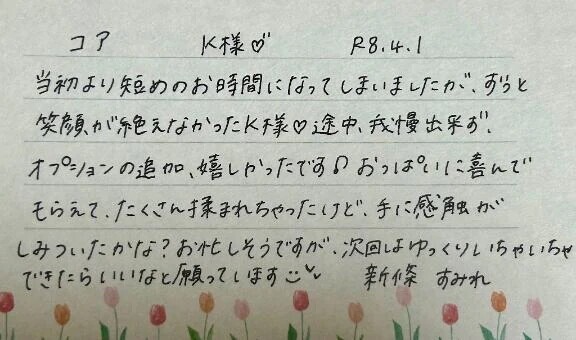 コア K様♡ R8.4.1
当初より短めのお時間になってしまいましたが、ずっと
笑顔が絶えなかったK様♡途中、我慢出来ず、
オプションの追加、嬉しかったです♪おっぱいに喜んで
もらえて、たくさん揉まれちゃったけど、手に感触が
しみついたかな?お忙しそうですが、次回はゆっくりいちゃいちゃ
できたらいいなと願っています 新條 すみれ